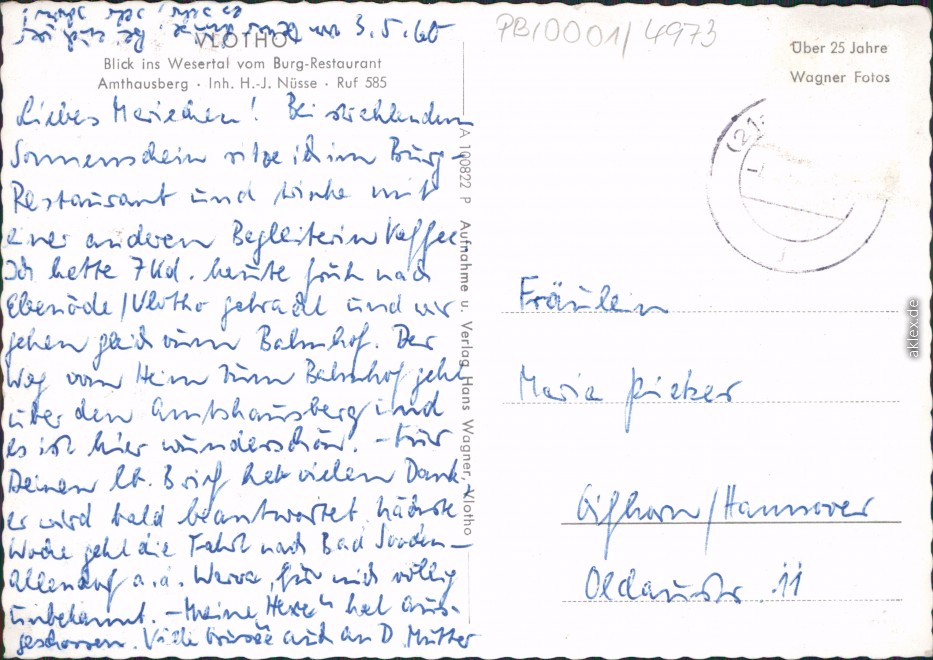 3.5.60
VLOTHO
Blick ins Wesertal vom Burg-Restaurant
Amthausberg · Inh. H.-J. Nüsse · Ruf 585
Liebes Mariechen! Bei strahlendem
Sonnenschein sitze ich im Burg-
Restaurant und trinke mit
einer anderen Begleiterin Kaffee.
Ich hatte 7 Kd. heute früh nach
Ebenöde/Vlotho gebracht und wir
gehen gleich zum Bahnhof. Der
Weg vom Heim zum Bahnhof geht
über den Amtshausberg und
es ist hier wunderschön. - Für
Deinen lb. Brief hab vielen Dank
er wird bald beantwortet. Nächste
Woche geht die Fahrt nach Bad Sooden-
Allendorf a.d. Werra, für mich völlig
unbekannt. - Meine "Hexe" hat aus-
geschossen. Viele Grüsse auch an D. Mutter
A 100822 P Aufnahme u. Verlag Hans Wagner, Vlotho
PB10001/4973
Über 25 Jahre
Wagner Fotos
(21
Fräulein
Maria
Gifhorn/Hannover
Oldaustr. 11
aklex.de